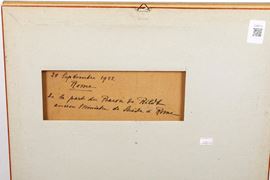 30 Septembre 1922
Rome
de la part du Baron de
ancien Ministre de Suède à Rome